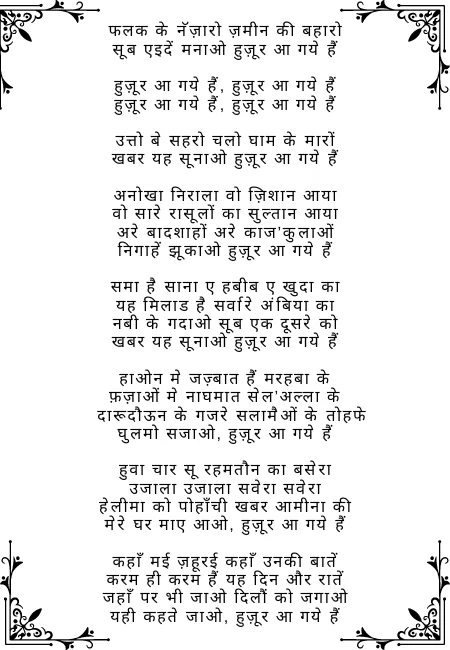 फलक के नॅज़ारो ज़मीन की बहारो
सूब एइदें मनाओ हुज़ूर आ गये हैं
हुज़ूर आ गये हैं, हुज़ूर आ गये हैं
हुज़ूर आ गये हैं, हुज़ूर आ गये हैं
उत्तो बे सहरो चलो घाम के मारों
खबर यह सूनाओ हुज़ूर आ गये हैं
अनोखा निराला वो ज़िशान आया
वो सारे रासूलों का सुल्तान आया
अरे बादशाहों अरे काज'कुलाओं
निगाहें झूकाओ हुज़ूर आ गये हैं
समा है साना ए हबीब ए खुदा का
यह मिलाड है सर्वारे अंबिया का
नबी के गदाओ सूब एक दूसरे को
खबर यह सूनाओ हुज़ूर आ गये हैं
हाओन मे जज़्बात हैं मरहबा के
फ़ज़ाओं मे नाघमात सेल'अल्ला के
दारूदौऊन के गजरे सलामैओं के तोहफे
घुलमो सजाओ, हुज़ूर आ गये हैं
हुवा चार सू रहमतौन का बसेरा
उजाला उजाला सवेरा सवेरा
हेलीमा को पोहाँची खबर आमीना की
मेरे घर माए आओ, हुज़ूर आ गये हैं
कहाँ मई ज़हूरई कहाँ उनकी बातें
करम ही करम हैं यह दिन और रातें
जहाँ पर भी जाओ दिलौं को जगाओ
यही कहते जाओ, हुज़ूर आ गये हैं